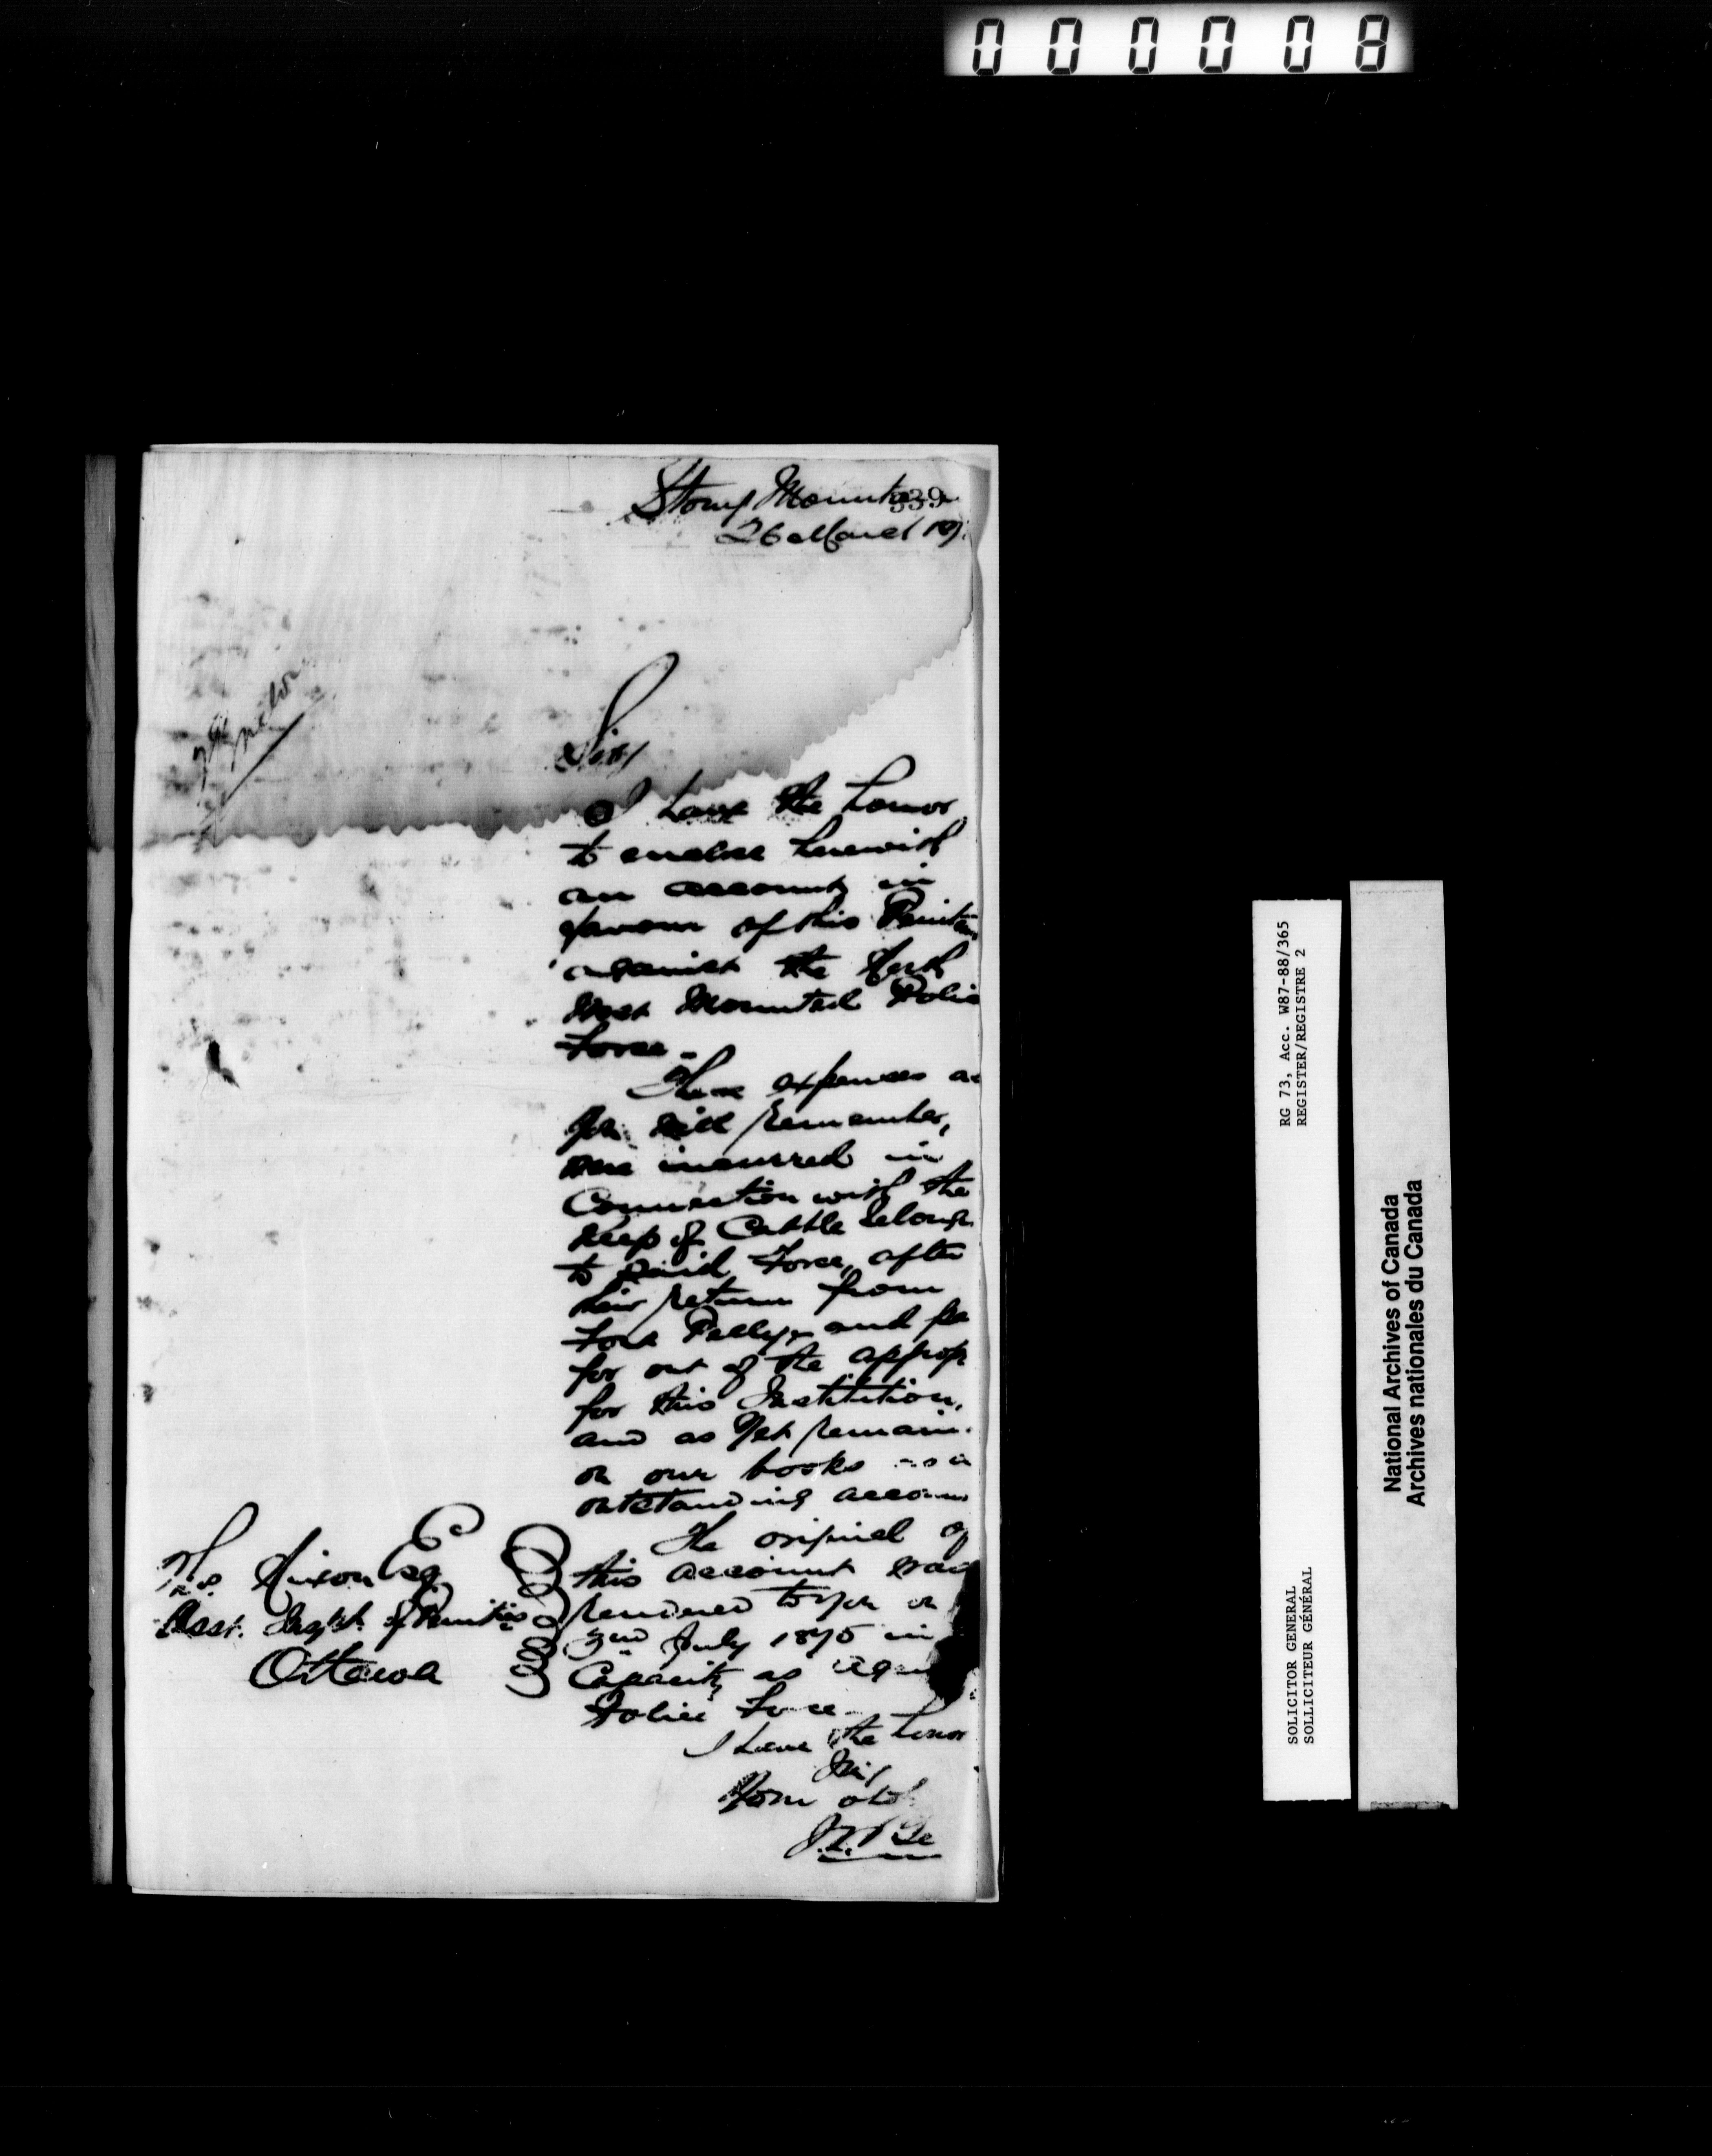 000008
339
Stony Mount
26 March 187
Inspector
Sir,
I have the honor
to enclose herewith
an account in
favour of this Peniten
against the North
West Mounted Polic
Force.
These expenses as
you will remember,
were incurred in
Connection with the
Keep of Cattle belong
to said Force, after
their return from
Fort Pelly, and pa
for out of the approp
for this Institution,
and as yet remain
on our books as a
outstanding accoun
The original of
this account was
rendered to you on
2nd July 1875 in
Capacity as agen
Police Force.
I have the honor
Sir,
Your obt
Nixon Esq
Asst. Inspt. of Penit
Ottawa
RG 73, Acc. W87-88/365
REGISTER/REGISTRE 2
SOLICITOR GENERAL
SOLLICITEUR GÉNÉRAL
National Archives of Canada
Archives nationales du Canada